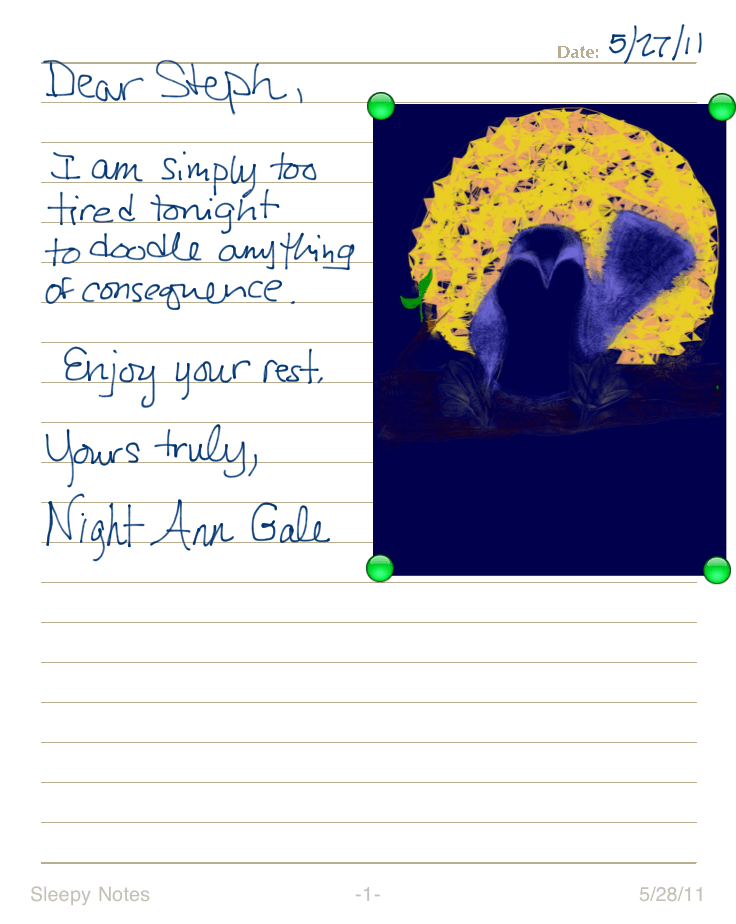 Date: 5/27/11
Dear Steph,
I am simply too
tired tonight
to doodle anything
of consequence.
Enjoy your rest.
Yours truly,
Night Ann Gale
Sleepy Notes -1- 5/28/11